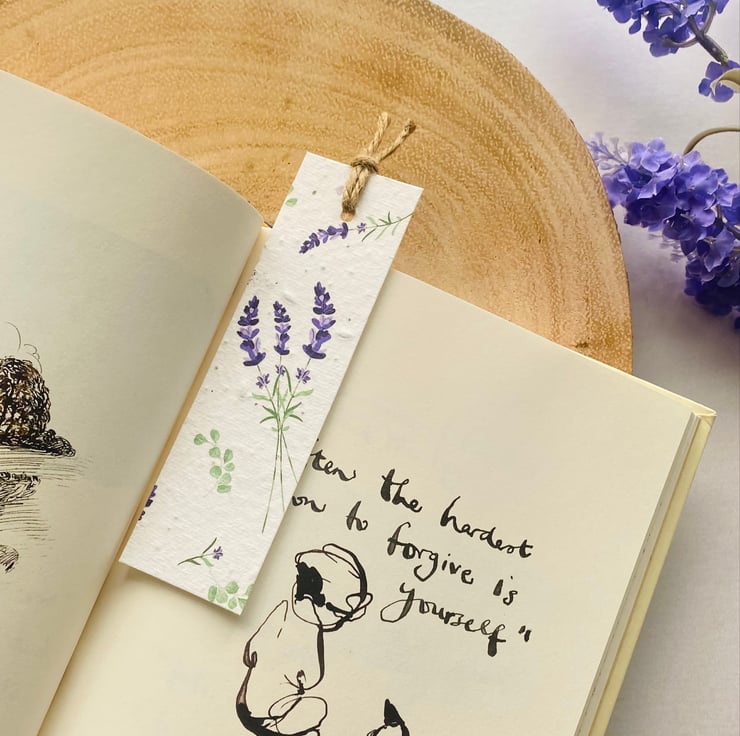 the hardest
to forgive is
yourself"